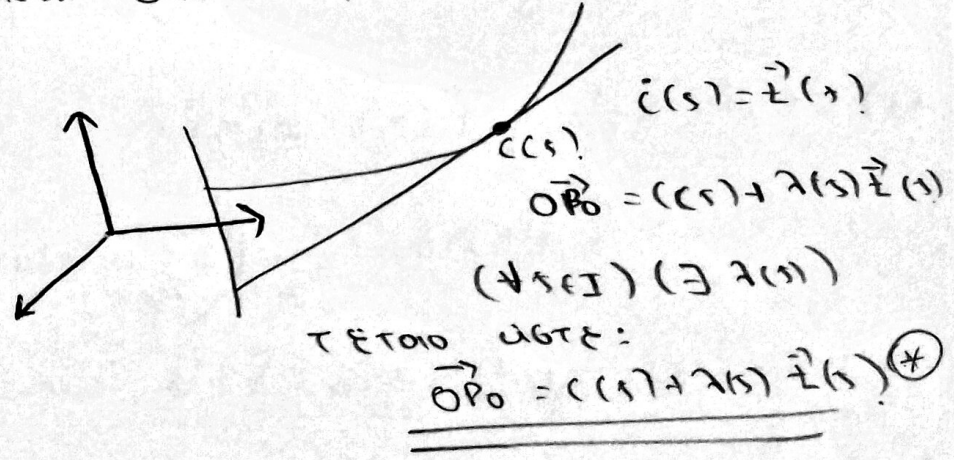 ċ(s) = t⃗(s)
c(s)
OP₀⃗ = c(s) + λ(s) t⃗(s)
(∀ s ∈ I) (∃ λ(s))
τέτοιο ώστε:
OP₀⃗ = c(s) + λ(s) t⃗(s) (*)